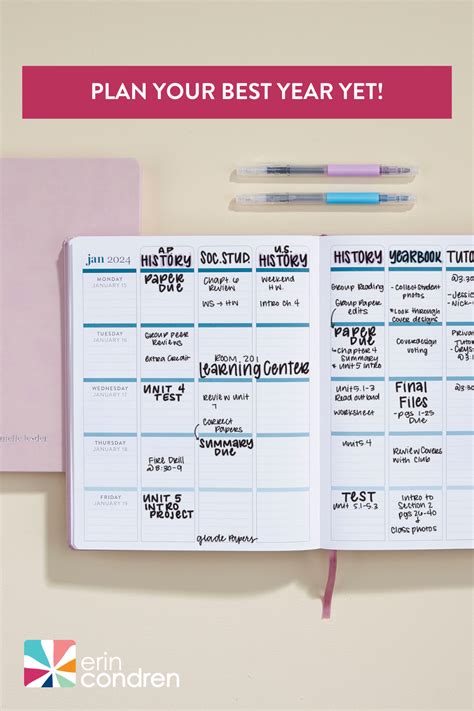 PLAN YOUR BEST YEAR YET!
jan 2024
AP HISTORY
SOC. STUD.
U.S. HISTORY
HISTORY
YEARBOOK
MONDAY
JANUARY 15
PAPER
DUE
Chapt. 6
Review
WS → HW
Weekend
HW
Intro Ch 4
Group Reading
Group Paper
edits
- Collect Student
photos
*Look through
cover designs
@3:30
TUESDAY
JANUARY 16
Group Peer
Reviews
Extra Credit
ROOM 201
Learning Center
PAPER
Due
• Chapter 4
Summary
• Unit 5 Intro
Cover design
voting
WEDNESDAY
JANUARY 17
UNIT 4
TEST
Review Unit
7
Correct
Papers
Unit 5.1-3
Read outloud
Worksheet
Final
Files
- pgs 1-25
Due
THURSDAY
JANUARY 18
Fire Drill
@ 8:30-9
SUMMARY
Due
Review Covers
with Club
FRIDAY
JANUARY 19
UNIT 5
INTRO
PROJECT
grade Papers
TEST
Unit 5.1-5.3
Intro to
Section 2
pgs 26-40
Class photos
erin
condren